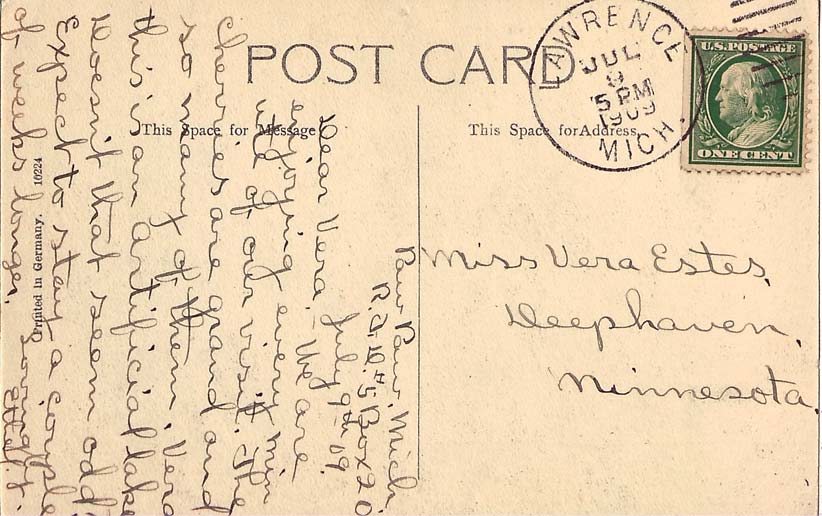 POST CARD
This Space for Message
This Space for Address.
LAWRENCE
JUL
9
5 PM
1909
MICH.
U.S. POSTAGE
ONE CENT
Miss Vera Estes,
Deephaven,
Minnesota.
Paw Paw, Mich
R.F.D. #5 Box 20.
July 9th 09.
Dear Vera:- We are
enjoying every min
ute of our visit. The
cherries are grand and
so many of them. Vera
this is an artificial lake
Doesn't that seem odd?
Expect to stay a couple
of weeks longer.
Loving
Printed in Germany. 10224